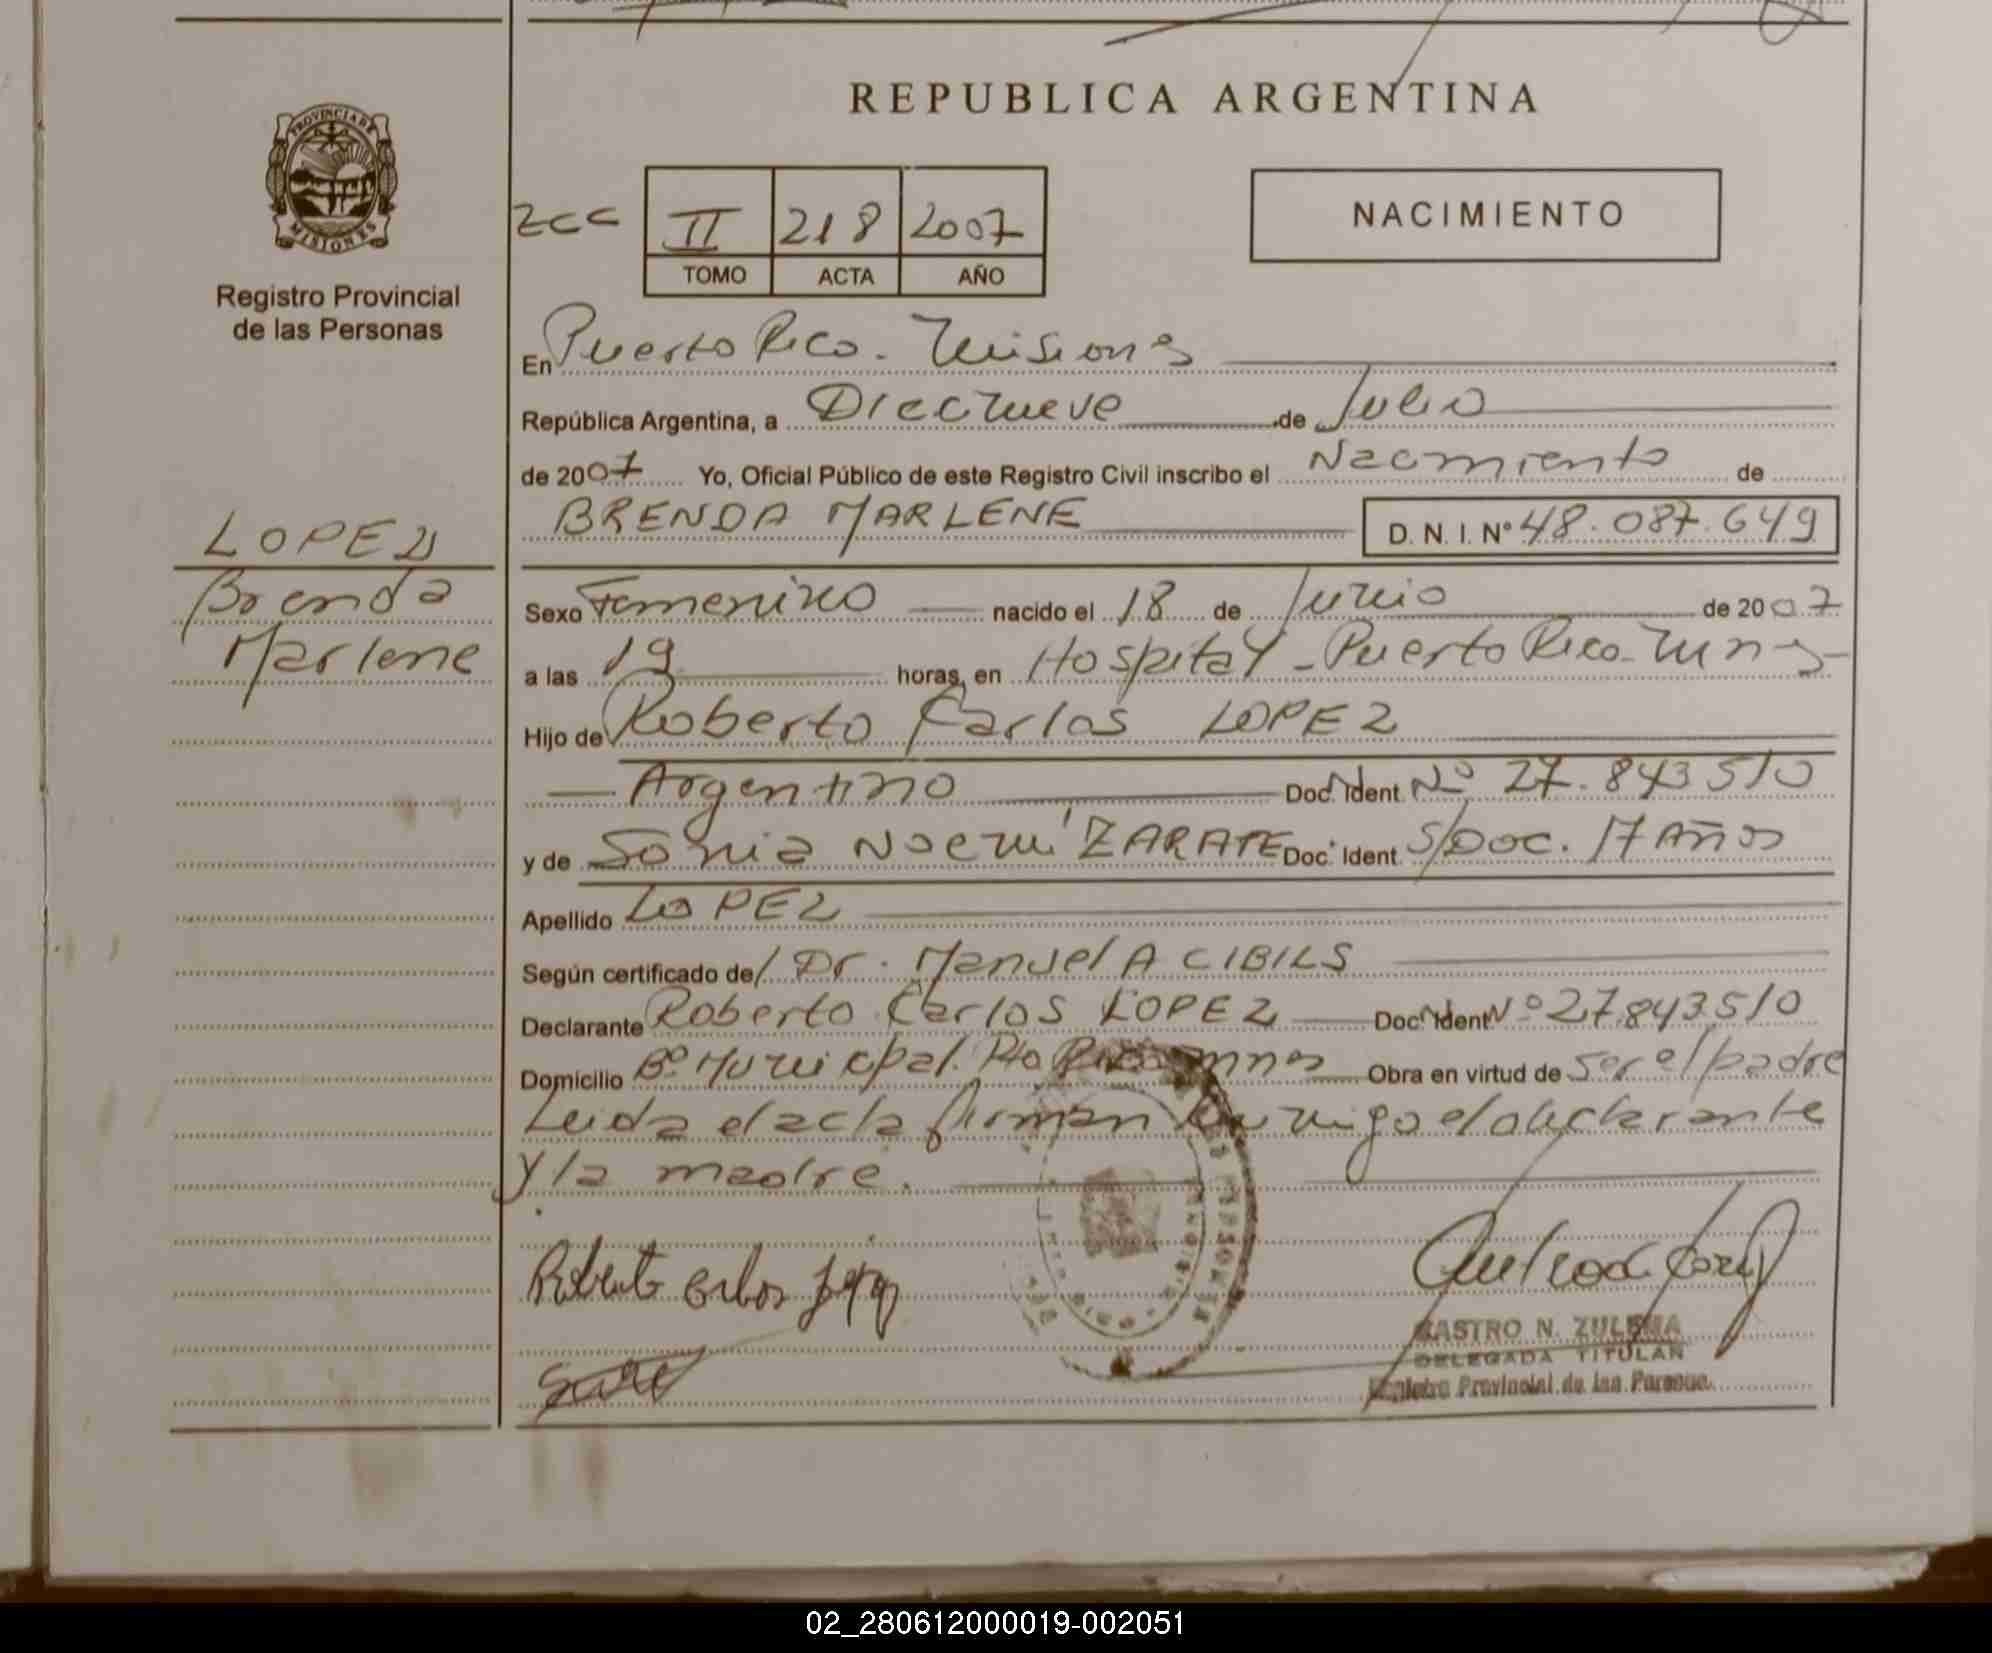 REPUBLICA ARGENTINA
PROVINCIA DE
MISIONES
Registro Provincial
de las Personas
zcc II 218 2007
TOMO ACTA AÑO
NACIMIENTO
En Puerto Rico. Misiones
República Argentina, a Diecinueve de Julio
de 2007 Yo, Oficial Público de este Registro Civil inscribo el Nacimiento de
BRENDA MARLENE D. N. I. Nº 48.087.649
LOPEZ
Brenda
Marlene
Sexo Femenino nacido el 18 de Junio de 2007
a las 19 horas, en Hospital - Puerto Rico - Mnes
Hijo de Roberto Carlos LOPEZ
Argentino Doc. Ident. Nº 27.843510
y de Sonia Noemí ZARATE Doc. Ident. S/Doc. 17 Años
Apellido LOPEZ
Según certificado del Dr. Manuel A CIBILS
Declarante Roberto Carlos LOPEZ Doc. Ident Nº 27.843510
Domicilio Bº Municipal. Pto Rico mnes Obra en virtud de ser el padre
Leida el acta firman conmigo el declarante
y la madre.
Roberto Carlos Lopez
CASTRO N. ZULEMA
DELEGADA TITULAR
Registro Provincial de las Personas
02_280612000019-002051